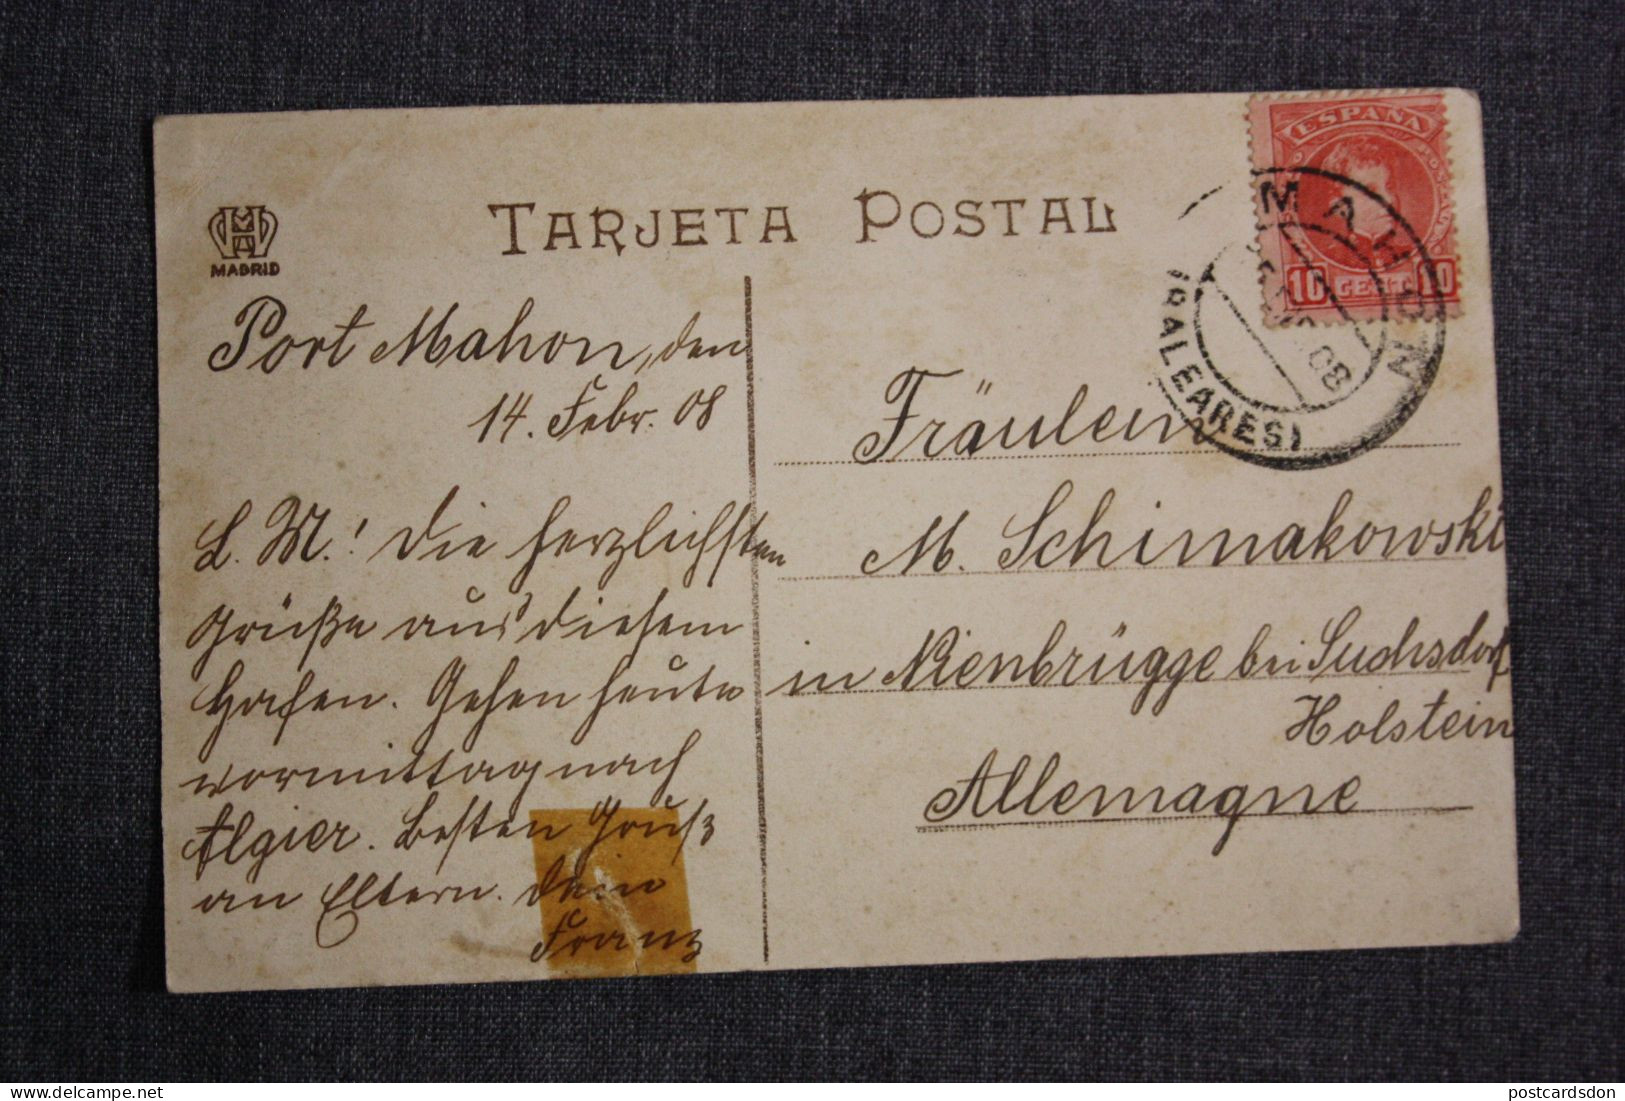 HAM
MADRID
TARJETA POSTAL
ESPAÑA
10 CENT. 10
MAHON
08
(BALEARES)
Port Mahon, den
14. Febr. 08
L. M.! Die herzlichsten
Grüße aus diesem
Hafen. Gehen heute
vormittag nach
Algier. Besten Gruß
an Eltern. Dein
Franz
Fräulein
M. Schimakowski
in Nienbrügge bei Suchsdorf
Holstein
Allemagne
postcardsdon